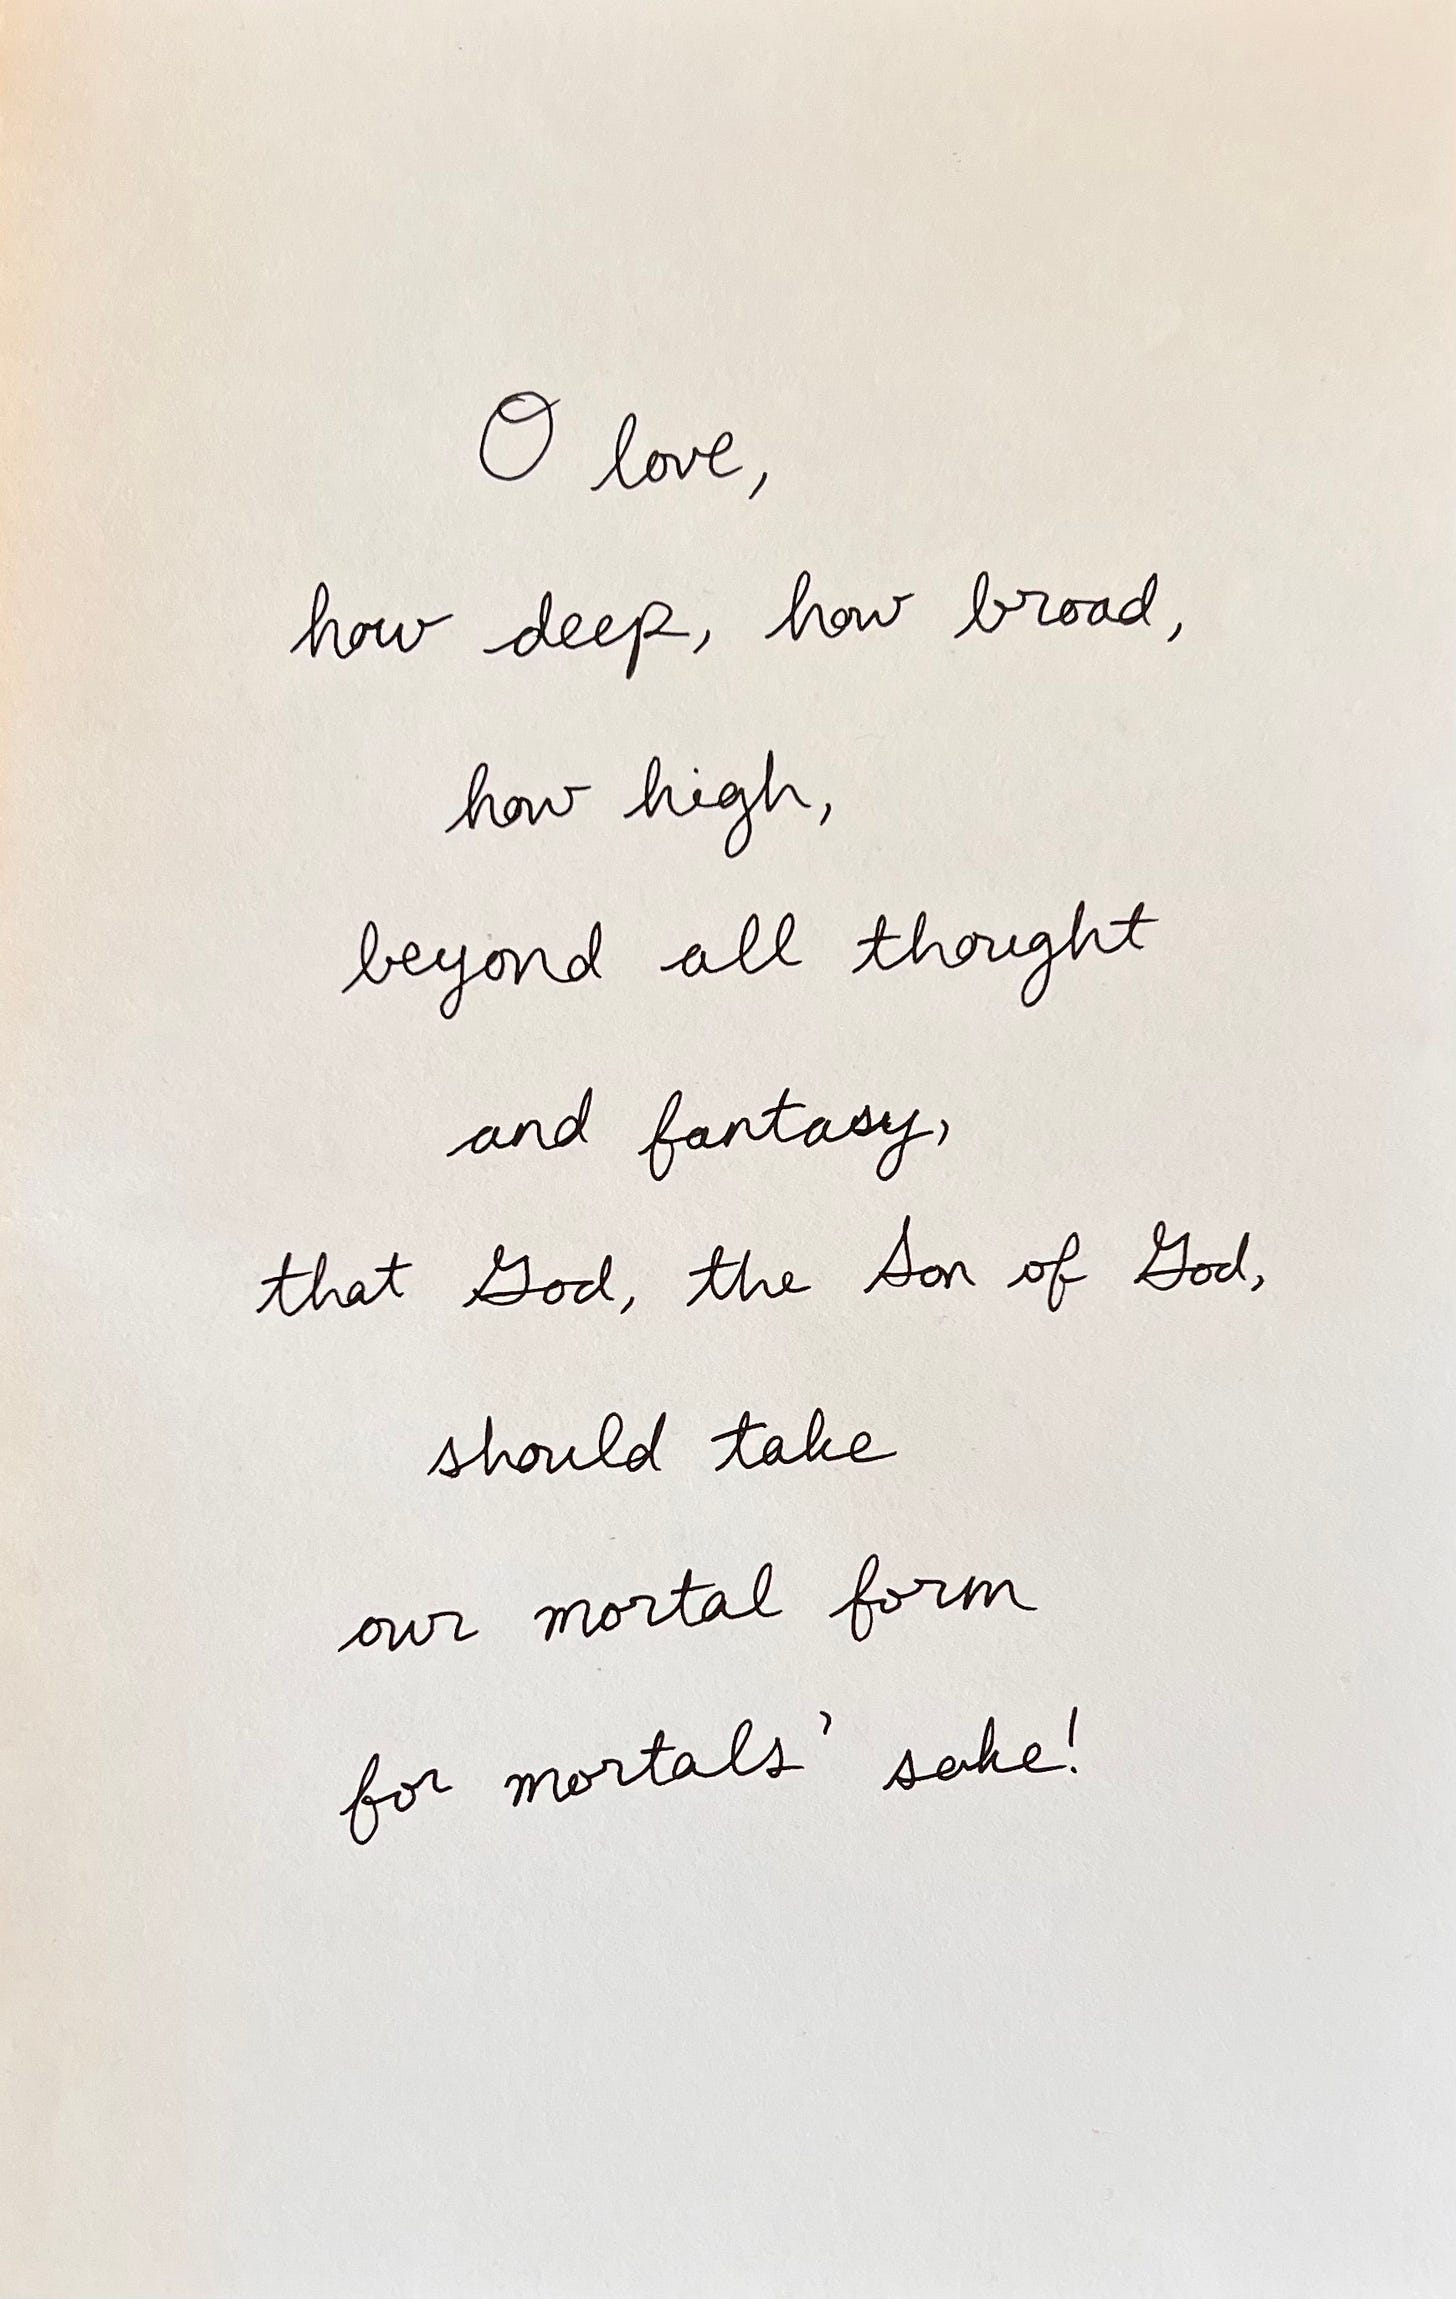 O love,
how deep, how broad,
how high,
beyond all thought
and fantasy,
that God, the Son of God,
should take
our mortal form
for mortals' sake!